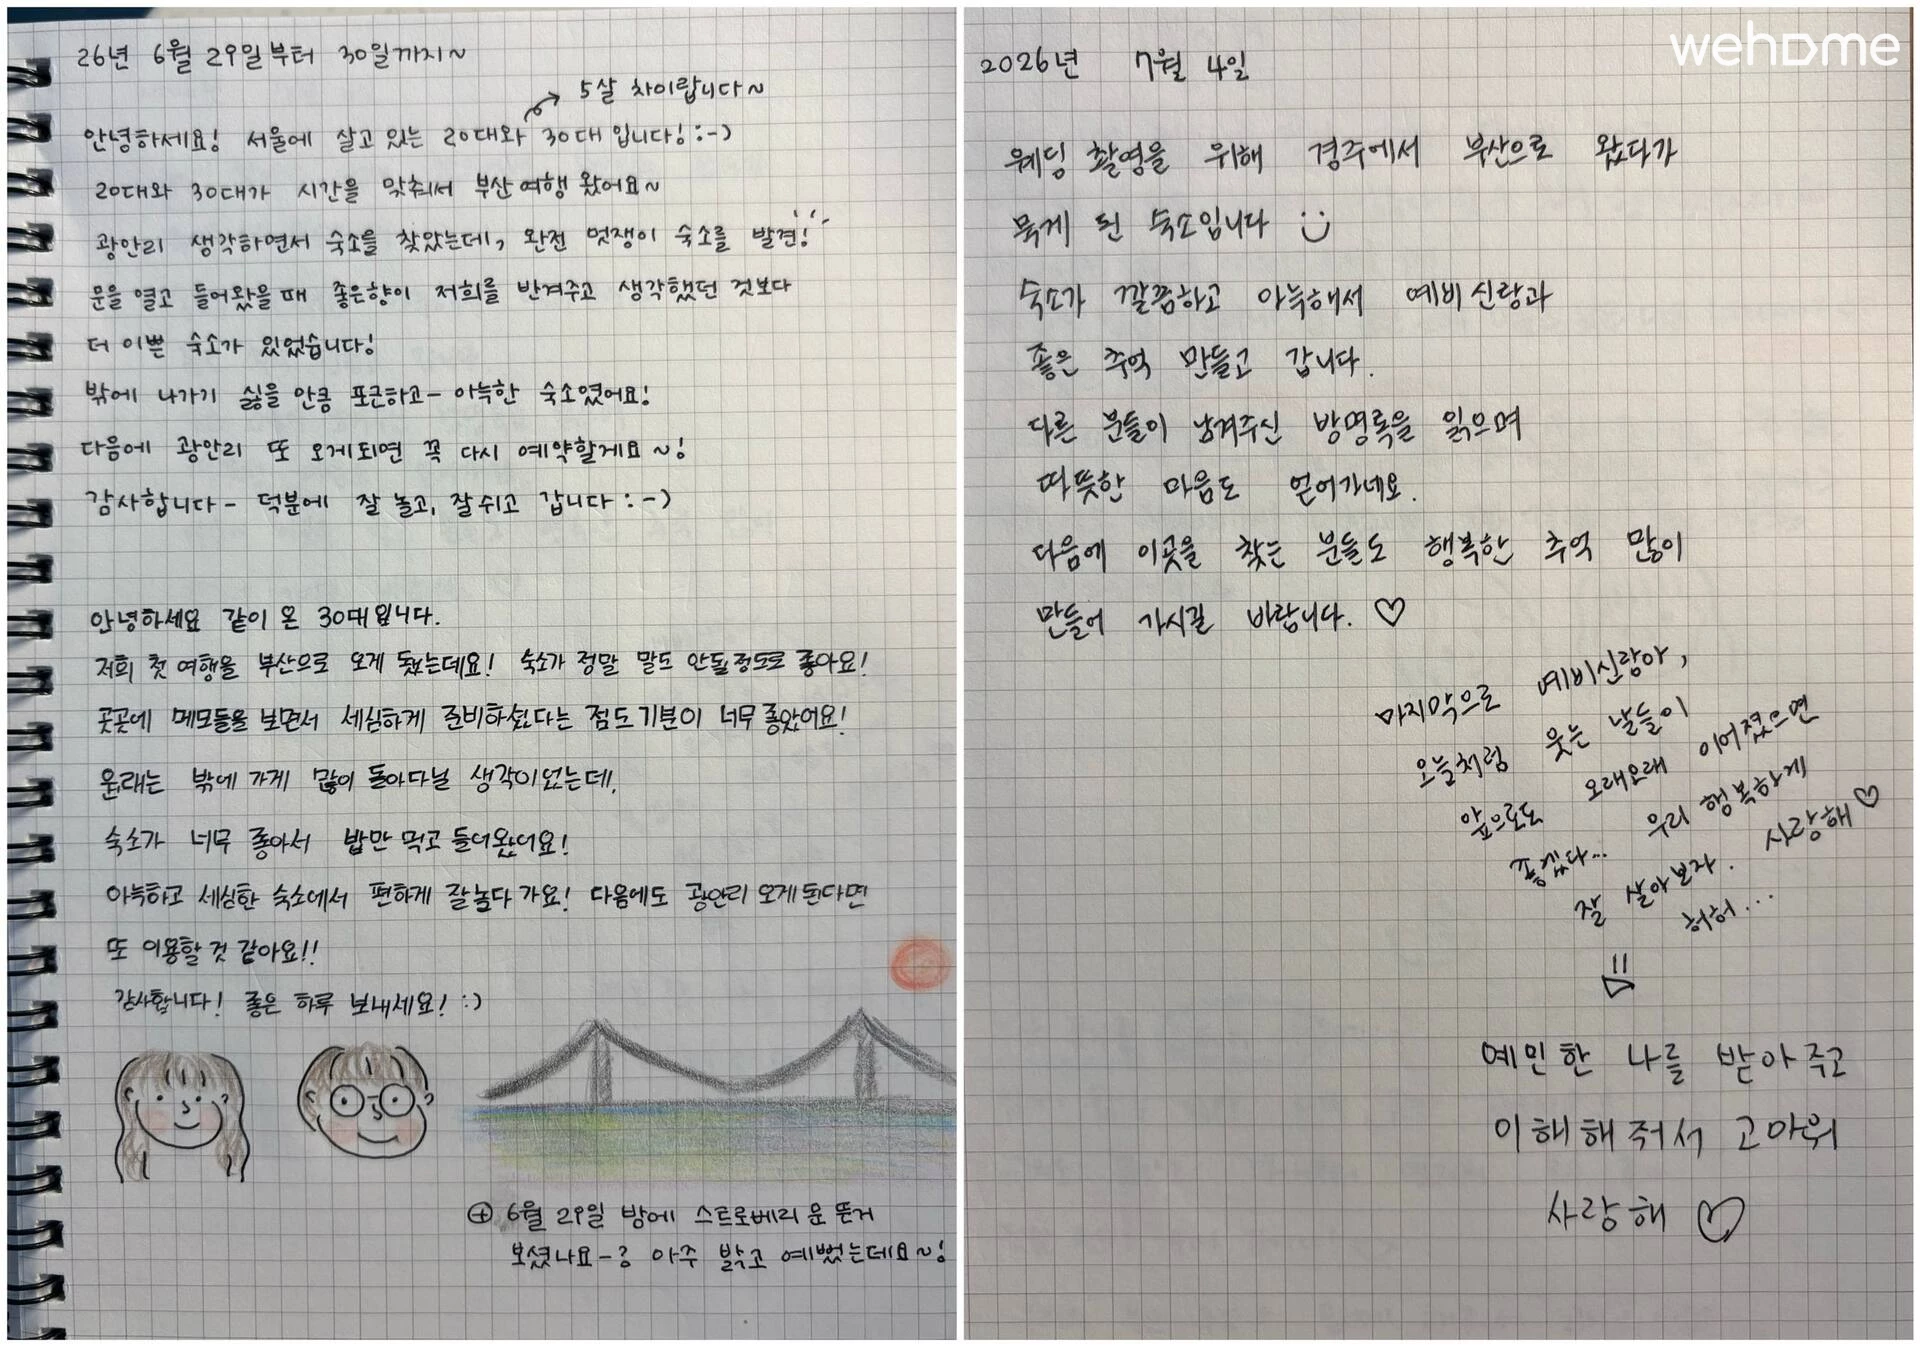 26년 6월 29일부터 30일까지~
5살 차이랍니다~
안녕하세요! 서울에 살고 있는 20대와 30대 입니다! :-)
20대와 30대가 시간을 맞춰서 부산여행 왔어요~
광안리 생각하면서 숙소를 찾았는데, 완전 멋쟁이 숙소를 발견!
문을 열고 들어왔을때 좋은향이 저희를 반겨주고 생각했던 것보다
더 이쁜 숙소가 있었습니다!
밖에 나가기 싫을 만큼 포근하고- 아늑한 숙소였어요!
다음에 광안리 또 오게되면 꼭 다시 예약할게요~!
감사합니다- 덕분에 잘 놀고, 잘쉬고 갑니다 :-)
안녕하세요 같이 온 30대입니다.
저희 첫 여행을 부산으로 오게 됐는데요! 숙소가 정말 말도 안될정도로 좋아요!
곳곳에 메모들을 보면서 세심하게 준비하셨다는 점도 기분이 너무 좋았어요!
원래는 밖에 가게 많이 돌아다닐 생각이었는데,
숙소가 너무 좋아서 밥만 먹고 들어왔어요!
아늑하고 세심한 숙소에서 편하게 잘놀다 가요! 다음에도 광안리 오게된다면
또 이용할 것 같아요!!
감사합니다! 좋은 하루 보내세요! :)
⊕ 6월 29일 밤에 스트로베리 문 뜬거
보셨나요-? 아주 밝고 예뻤는데요~!
wehome
2026년 7월 4일
웨딩 촬영을 위해 경주에서 부산으로 왔다가
묵게 된 숙소입니다
숙소가 깔끔하고 아늑해서 예비신랑과
좋은 추억 만들고 갑니다.
다른 분들이 남겨주신 방명록을 읽으며
따뜻한 마음도 얻어가네요.
다음에 이곳을 찾는 분들도 행복한 추억 많이
만들어 가시길 바랍니다. ♡
마지막으로 예비신랑아,
오늘처럼 웃는 날들이
앞으로도 오래오래 이어졌으면
좋겠다... 우리 행복하게
잘 살아보자. 사랑해♡
허허...
예민한 나를 받아주고
이해해줘서 고마워
사랑해 ♡